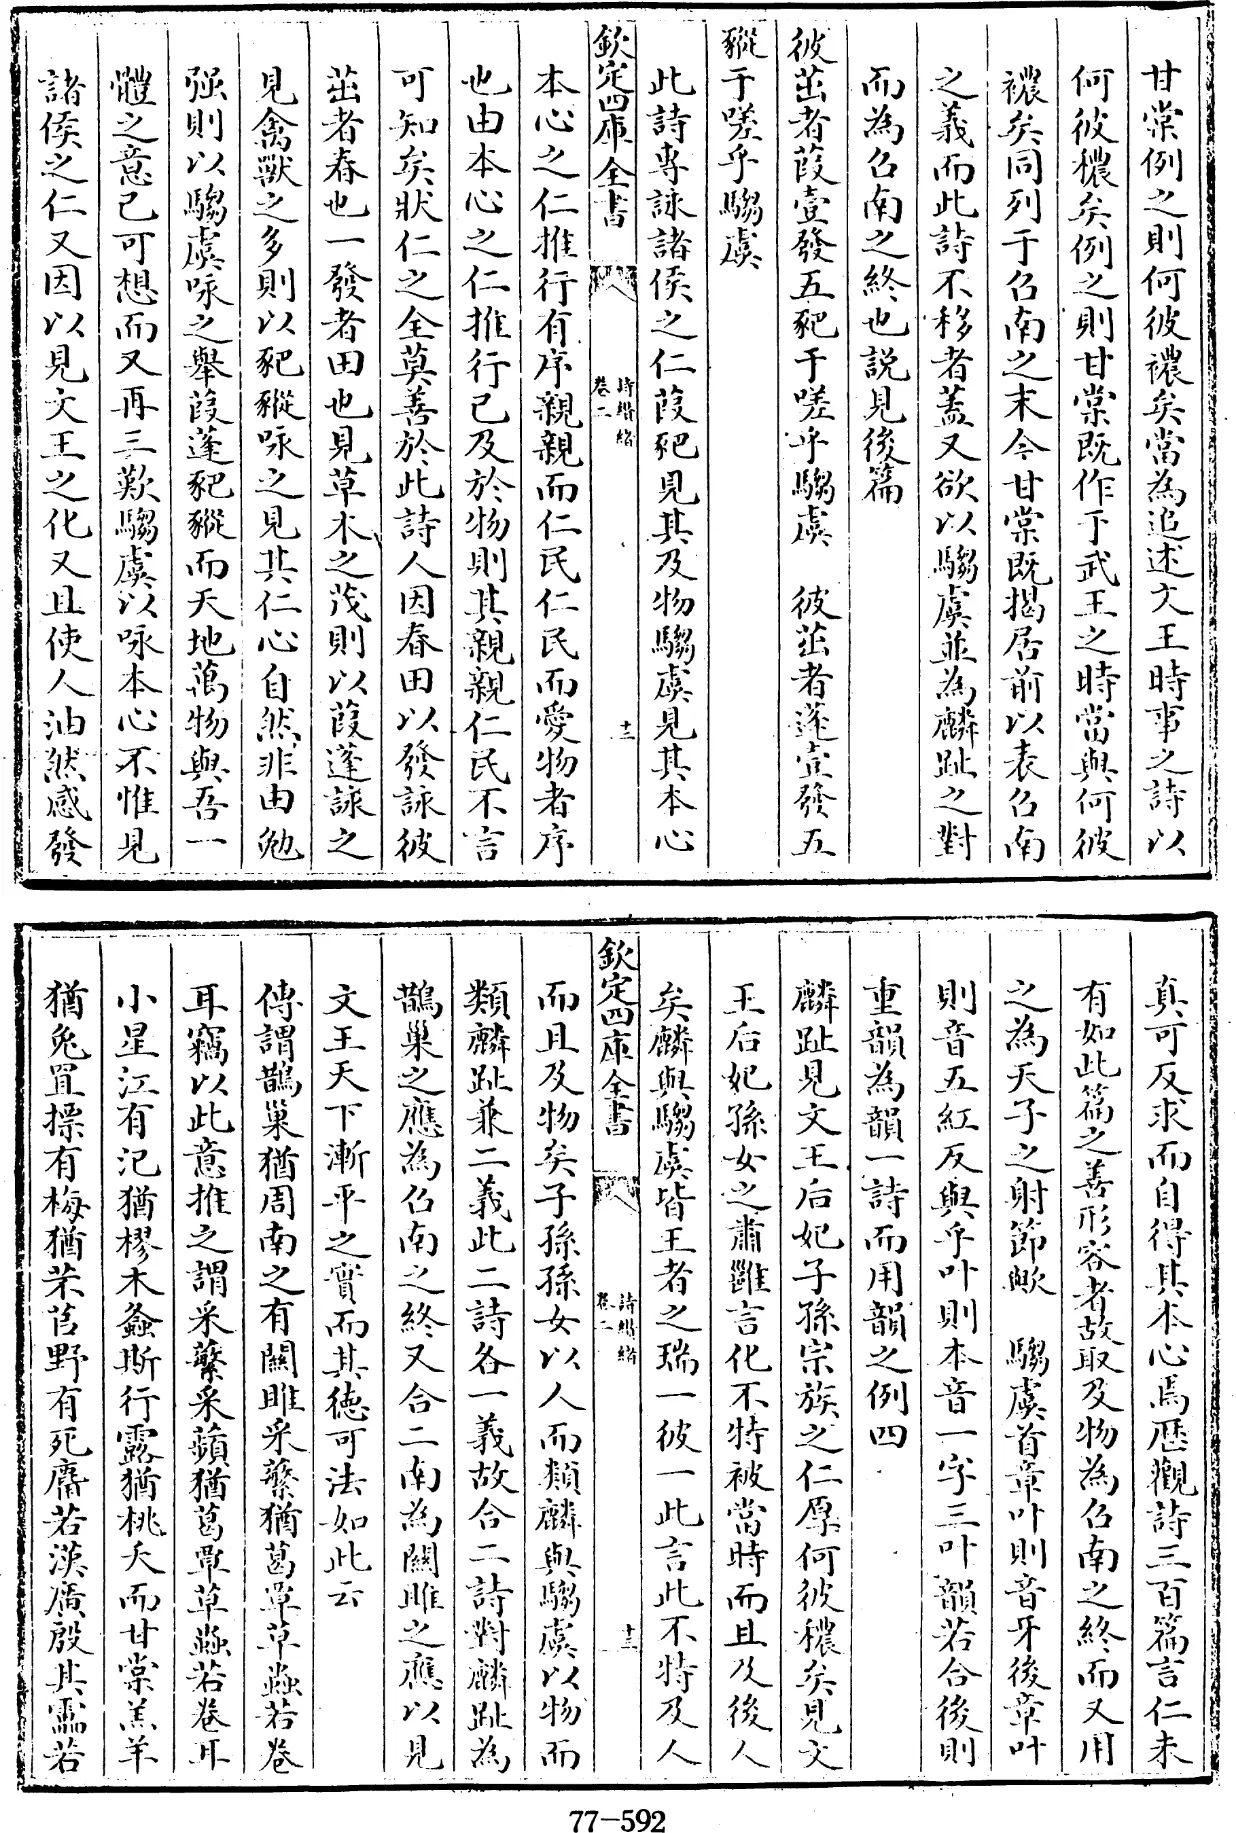 甘棠例之則何彼襛矣當為追述文王時事之詩以
何彼穠矣例之則甘棠既作于武王之時當與何彼
襛矣同列于召南之末今甘棠既揭居前以表召南
之義而此詩不移者蓋又欲以騶虞並為麟趾之對
而為召南之終也說見後篇
彼茁者葭壹發五豝于嗟乎騶虞　彼茁者蓬壹發五
豵于嗟乎騶虞
此詩專詠諸侯之仁葭豝見其及物騶虞見其本心
欽定四庫全書
詩纘緒
卷二
十二
本心之仁推行有序親親而仁民仁民而愛物者序
也由本心之仁推行已及於物則其親親仁民不言
可知矣狀仁之全莫善於此詩人因春田以發詠彼
茁者春也一發者田也見草木之茂則以葭蓬詠之
見禽獸之多則以豝豵咏之見其仁心自然非由勉
强則以騶虞咏之舉葭蓬豝豵而天地萬物與吾一
體之意已可想而又再三歎騶虞以咏本心不惟見
諸侯之仁又因以見文王之化又且使人油然感發
真可反求而自得其本心焉歷觀詩三百篇言仁未
有如此篇之善形容者故取及物為召南之終而又用
之為天子之射節歟　騶虞首章叶則音牙後章叶
則音五紅反與乎叶則本音一字三叶韻若合後則
重韻為韻一詩而用韻之例四
麟趾見文王后妃子孫宗族之仁厚何彼穠矣見文
王后妃孫女之肅雝言化不特被當時而且及後人
矣麟與騶虞皆王者之瑞一彼一此言此不特及人
欽定四庫全書
詩纘緒
卷二
十三
而且及物矣子孫孫女以人而類麟與騶虞以物而
類麟趾兼二義此二詩各一義故合二詩對麟趾為
鵲巢之應為召南之終又合二南為關雎之應以見
文王天下漸平之實而其德可法如此云
傳謂鵲巢猶周南之有關雎采蘩猶葛覃草蟲若卷
耳竊以此意推之謂采蘩采蘋猶葛覃草蟲若卷耳
小星江有汜猶樛木螽斯行露猶桃夭而甘棠羔羊
猶兔罝摽有梅猶芣苢野有死麕若漢廣殷其靁若
77-592